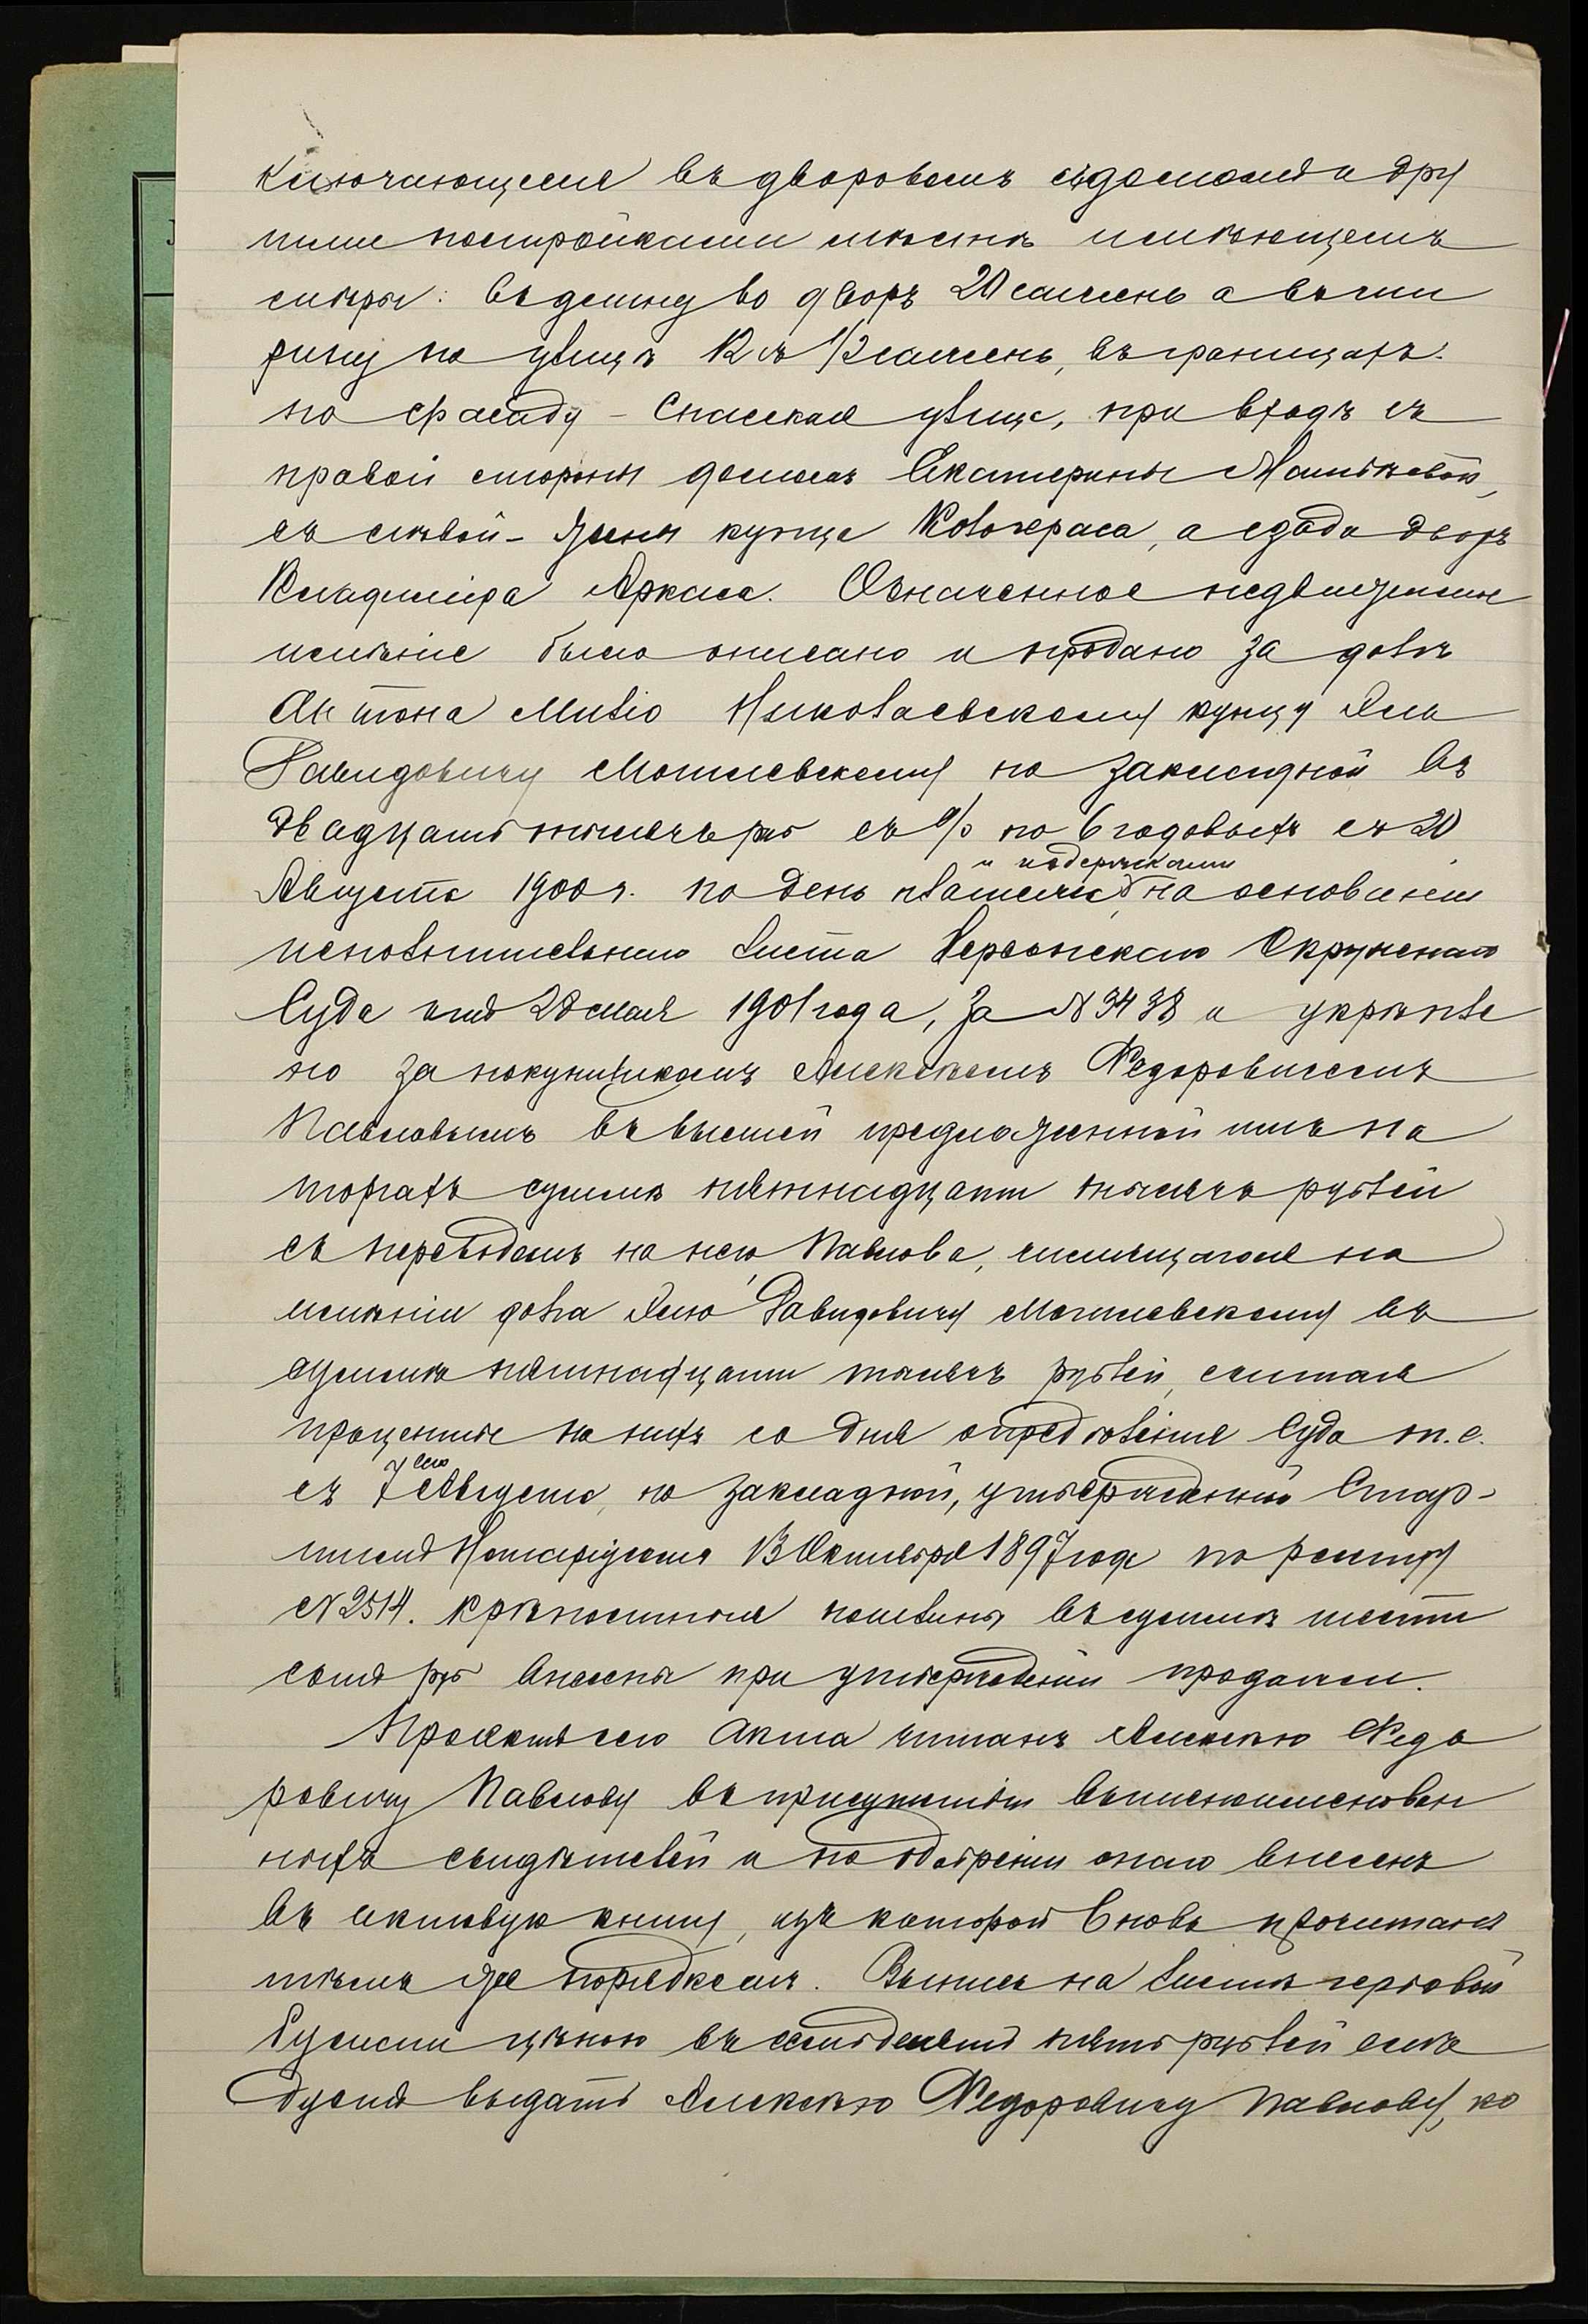 ключающееся въ дворовомъ съ домомъ и дру
гими постройками мѣстѣ имѣющемъ
мѣры: въ длину во дворъ 20 сажень а въ ши
рину по улицѣ 12 и 1/2 сажень, въ границахъ:
по фасаду - Спасская улица, при входѣ съ
правой стороны домомъ Екатерины
съ лѣвой - жены купца Колочераса, а сзади дворъ
Владиміра Аркаса. Означенное недвижимое
имѣніе было описано и продано за долгъ
Антона Мильо Николаевскому купцу Яну
Давидовичу Могилевскому по закладной въ
двадцать тысячъ руб съ % по 6 годовыхъ съ 20
и издержками
Августа 1900 г. по день платежа на основаніи
исполнительнаго листа Херсонскаго Окружнаго
Суда отъ 28 мая 1901 года, за № 3438 и укрѣпле
но за покупщикомъ Алексѣемъ Федоровичемъ
Павловымъ въ высшей предложенной имъ на
торгахъ суммѣ пятнадцати тысячъ рублей
съ переводомъ на него Павлова, числящагося на
имѣніи долга Яну Давидовичу Могилевскому въ
суммѣ пятнадцати тысячъ рублей, считая
проценты на нихъ со дня опредѣленія Суда т.е.
сего
съ 7 Августа, по закладной, утвержденной Стар-
шимъ Нотаріусомъ 13 Октября 1897 года по реестру
№ 2514. Крѣпостныя пошлины въ суммѣ шести
сотъ руб внесены при утвержденіи продажи.
Проектъ сего акта читанъ Алексѣю Федо
ровичу Павлову въ присутствіи вышепоименован
ныхъ свидѣтелей и по одобреніи онаго внесенъ
въ актовую книгу, изъ которой вновь прочитанъ
тѣмъ же порядкомъ. Выпись на листѣ гербовой
бумаги цѣною въ семьдесятъ пять рублей слѣ
дуетъ выдать Алексѣю Федоровичу Павлову, ко